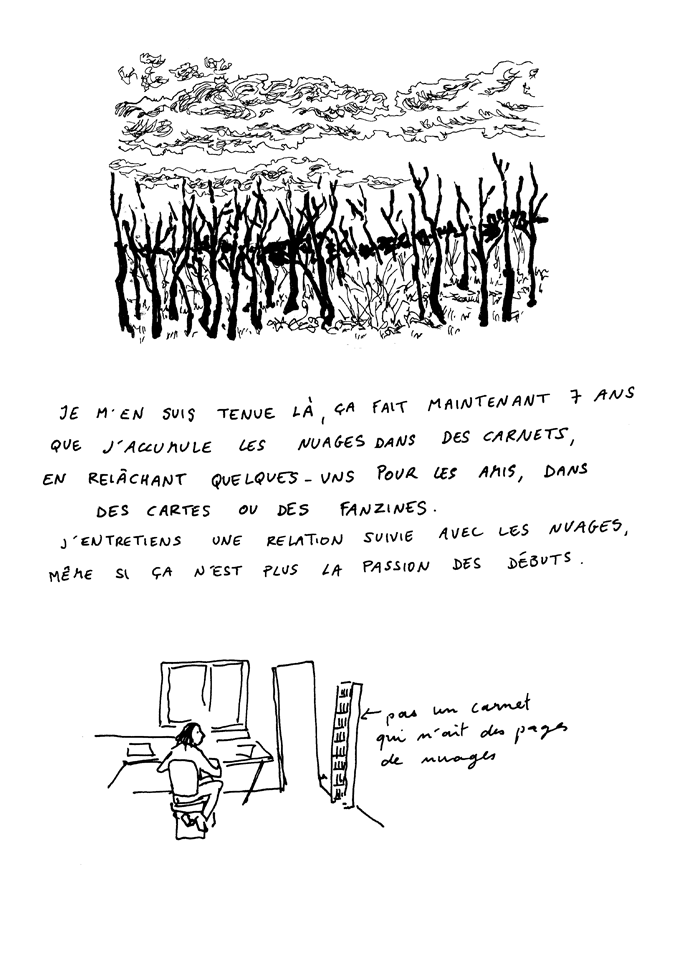 JE M'EN SUIS TENUE LÀ, ÇA FAIT MAINTENANT 7 ANS
QUE J'ACCUMULE LES NUAGES DANS DES CARNETS,
EN RELÂCHANT QUELQUES-UNS POUR LES AMIS, DANS
DES CARTES OU DES FANZINES.
J'ENTRETIENS UNE RELATION SUIVIE AVEC LES NUAGES,
MÊME SI ÇA N'EST PLUS LA PASSION DES DÉBUTS.
pas un carnet
qui n'ait des pages
de nuages